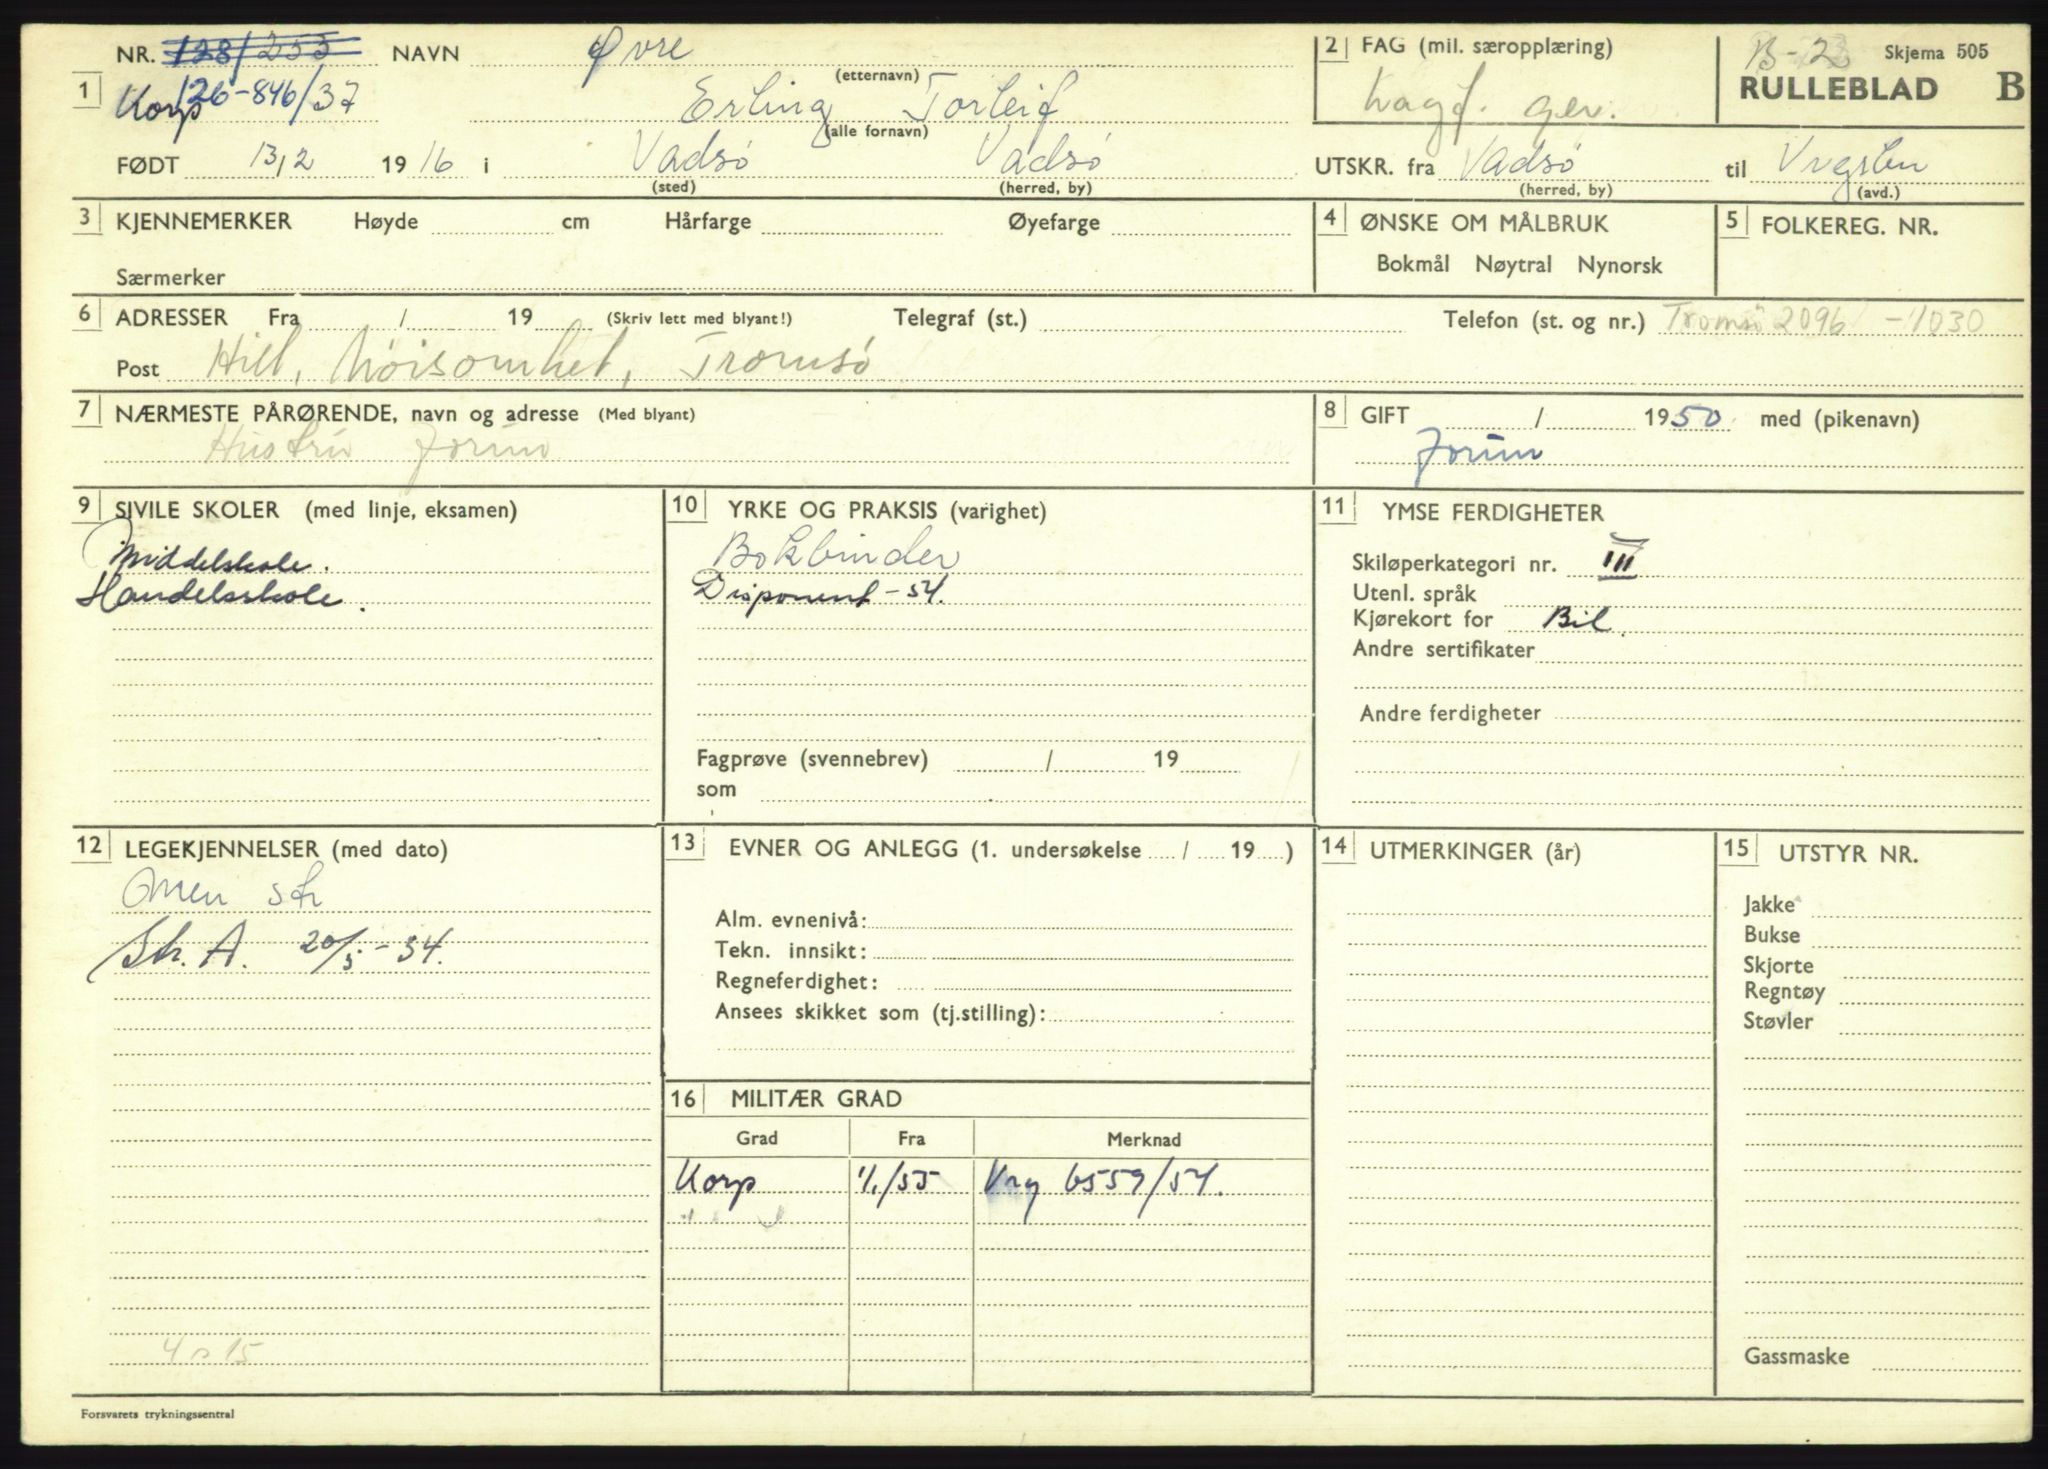 NR. 128/255 NAVN Øvre (etternavn)
1 Korp 126-846/37 Erling Torleif (alle fornavn)
FØDT 13/2 1916 i Vadsø (sted) Vadsø (herred, by)
2 FAG (mil. særopplæring)
gev.
B-23 Skjema 505
RULLEBLAD B
UTSKR. fra Vadsø (herred, by) til Vrgsbn (avd.)
3 KJENNEMERKER Høyde cm Hårfarge Øyefarge
Særmerker
4 ØNSKE OM MÅLBRUK
Bokmål Nøytral Nynorsk
5 FOLKEREG. NR.
6 ADRESSER Fra / 19 (Skriv lett med blyant!) Telegraf (st.) Telefon (st. og nr.) Tromsø 2096 - 1030
Post Hilt, Nøisomhet, Tromsø
7 NÆRMESTE PÅRØRENDE, navn og adresse (Med blyant)
Hustru Jorun
8 GIFT / 1950 med (pikenavn)
Jorun
9 SIVILE SKOLER (med linje, eksamen)
Middelskole.
Handelsskole.
10 YRKE OG PRAKSIS (varighet)
Bokbinder
Disponent -54.
Fagprøve (svennebrev) / 19
som
11 YMSE FERDIGHETER
Skiløperkategori nr. III
Utenl. språk
Kjørekort for Bil.
Andre sertifikater
Andre ferdigheter
12 LEGEKJENNELSER (med dato)
Men sk
Str. A. 20/5-54.
4 15
13 EVNER OG ANLEGG (1. undersøkelse / 19 )
Alm. evnenivå:
Tekn. innsikt:
Regneferdighet:
Ansees skikket som (tj.stilling):
14 UTMERKINGER (år)
15 UTSTYR NR.
Jakke
Bukse
Skjorte
Regntøy
Støvler
Gassmaske
16 MILITÆR GRAD
Grad Fra Merknad
Korp 1/1/55 Vrg 6559/54.
Forsvarets trykningssentral